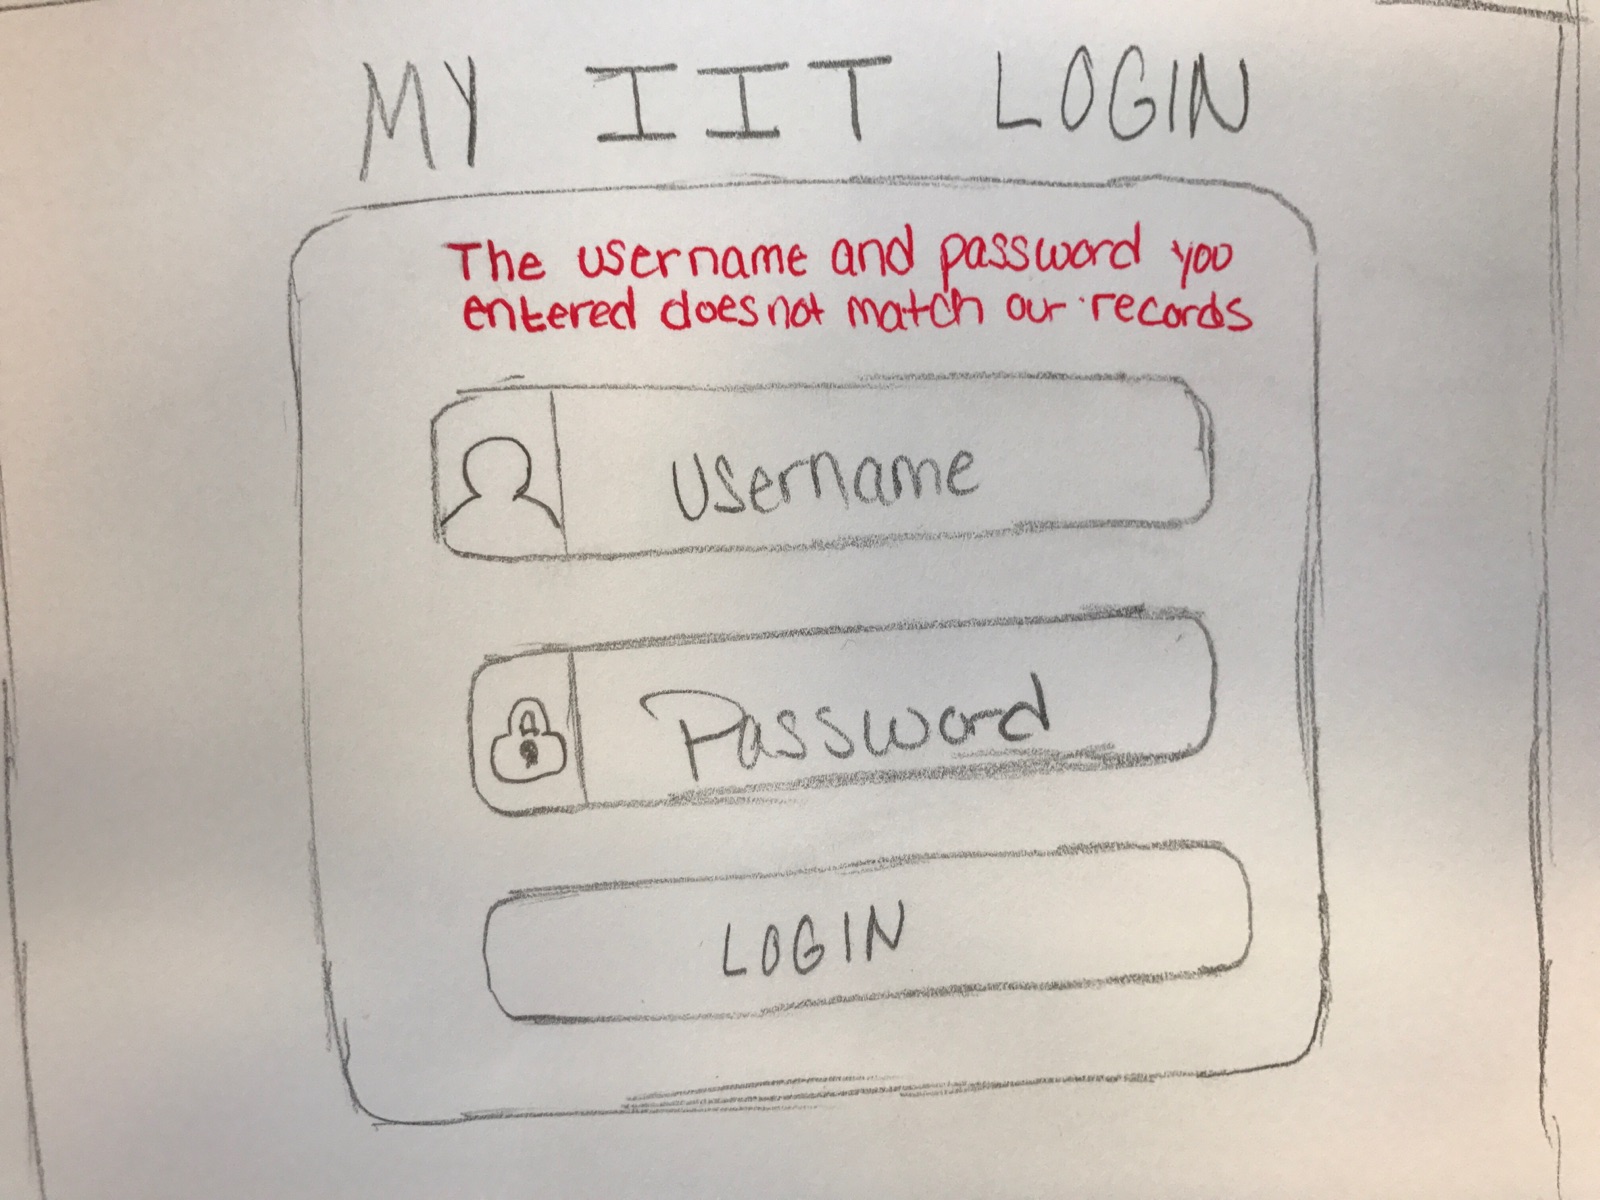 MY IIT LOGIN
The username and password you
entered does not match our records
Username
Password
LOGIN